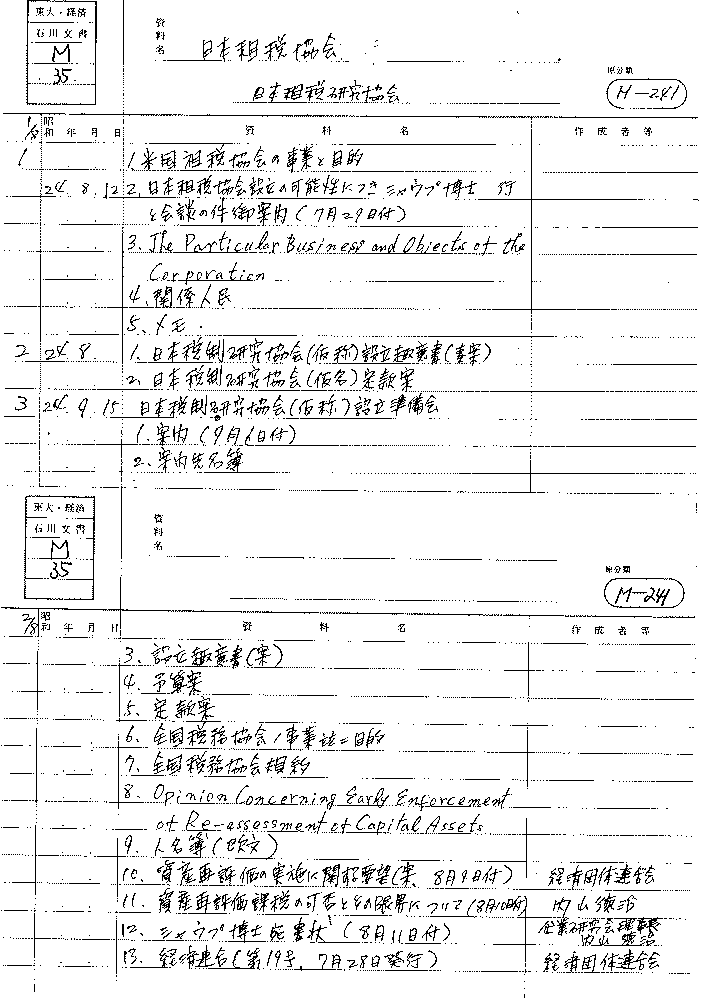 東大・経済
石川文書
M
35
資料名
日本租税協会
日本租税研究協会
原分類
M-241
1/8
昭和 年 月 日
資 料 名
作 成 者 等
1 1. 米国租税協会の事業と目的
24. 8. 12 2. 日本租税協会設立の可能性につきシャウプ博士一行
と会談の件御案内(7月29日付)
3. The Particular Business and Objects of the
Corporation
4. 関係人民
5. メモ.
2 24 8. 1. 日本税制研究協会(仮称)設立趣意書(草案)
2. 日本税制研究協会(仮名)定款案
3 24. 9. 15 日本税制研究協会(仮称)設立準備会
1. 案内(9月6日付)
2. 案内先名簿
東大・経済
石川文書
M
35
資料名
原分類
M-241
2/8
昭和 年 月 日
資 料 名
作 成 者 等
3. 設立趣意書(案)
4. 予算案
5. 定款案
6. 全国税務協会ノ事業並ニ目的
7. 全国税務協会規約
8. Opinion Concerning Early Enforcement
of Re-assessment of Capital Assets
9. 人名簿(欧文)
10. 資産再評価の実施に関する要望(案、8月9日付) 経済団体連合会
11. 資産再評価課税の可否とその限界について(8月10日付) 内山徳治
12. シャウプ博士宛書状(8月11日付) 企業研究会理事長
内山徳治
13. 経済連合(第19号、7月28日発行) 経済団体連合会